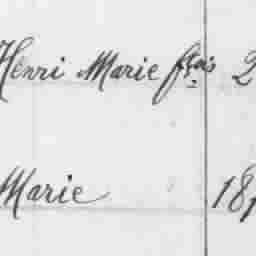 Henri Marie fçois 2
Marie 181